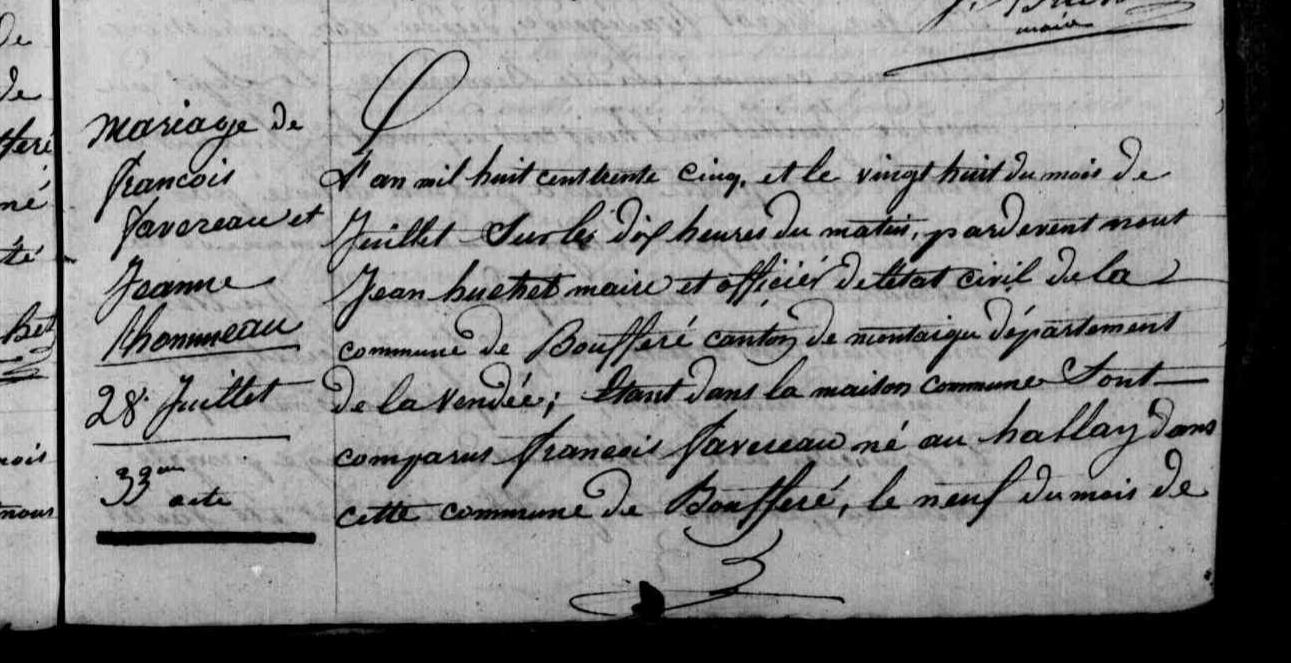 maire
de
de
fferé
né
té
het
mois
nous
Mariage de
francois
favereau et
Jeanne
thommeau
28. Juillet
33eme acte
L'an mil huit cent trente cinq, et le vingt huit du mois de
Juillet Sur les dix heures du matin, pardevent nout
Jean huchet maire et officiér de létat civil de la
commune de Boufferé canton de montaigu département
de la Vendée; Etant dans la maison commune Sont
comparus francois favereau né au hallay dans
cette commune de Boufferé, le neuf du mois de